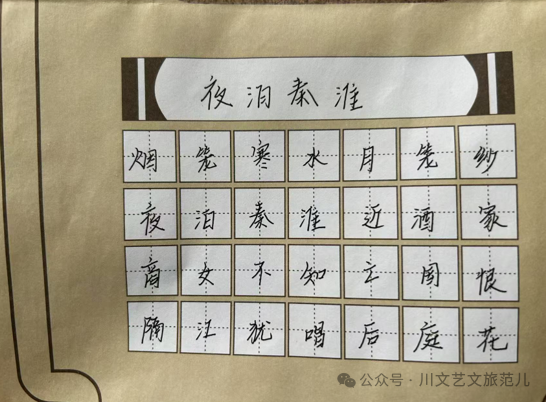 夜泊秦淮
烟笼寒水月笼纱
夜泊秦淮近酒家
商女不知亡国恨
隔江犹唱后庭花
公众号·川文艺文旅范儿